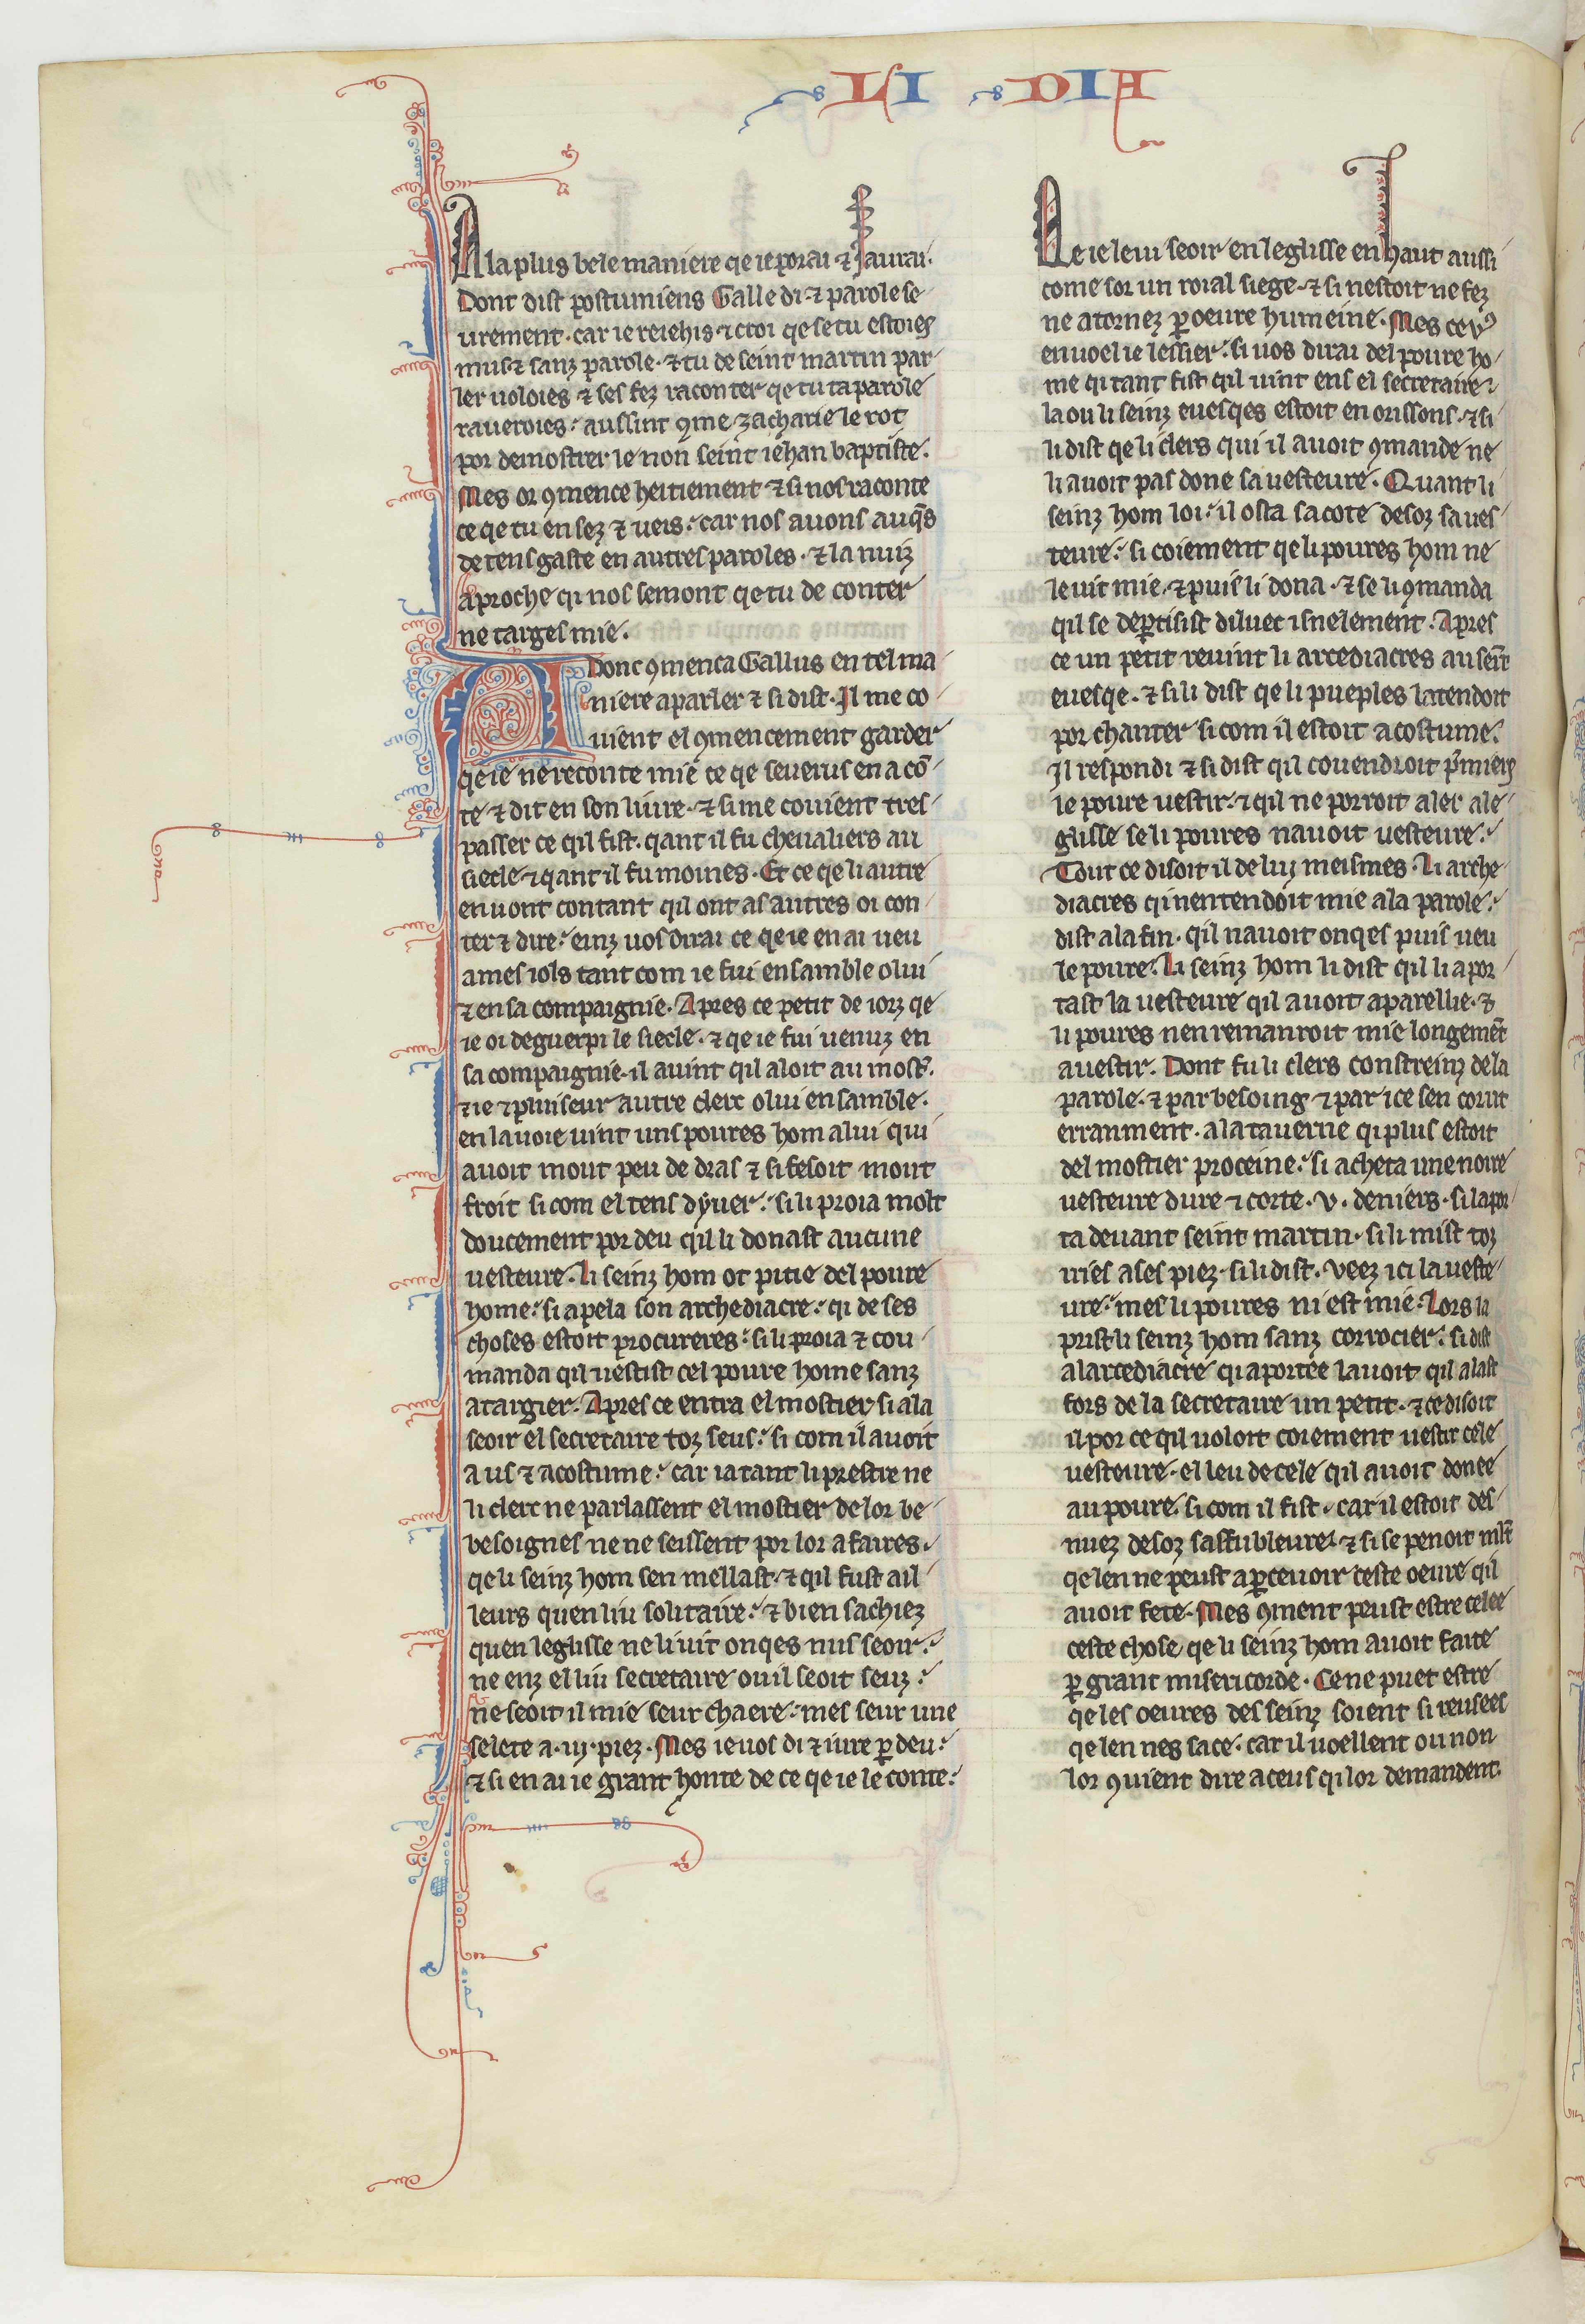 LI VIA
A la plus bele maniere qe ie porai ⁊ saurai.
Dont dist postumiens Galle di ⁊ parole se
urement. car ie reiehis ⁊ croi qe se tu estoies
mus ⁊ sanz parole. ⁊ tu de seint martin par
ler uoloies ⁊ ses fez raconter qe tu ta parole
raueroies. aussint ꝯme zacharie le rot
por demostrer le non seint iehan baptiste.
Mes or ꝯmence heitiement ⁊ si nos raconte
ce qe tu en sez ⁊ ueis. car nos auons auq̄s
de tens gaste en autres paroles. ⁊ la nuiz
aproche qi nos semont qe tu de conter
ne targes mie.
A Donc ꝯmenca Gallus en tel ma
niere a parler ⁊ si dist. Il me co
uient el ꝯmencement garder
qe ie ne reconte mie ce qe seuerus en a cō
te ⁊ dit en son liure. ⁊ si me couient tres
passer ce qil fist. qant il fu cheualiers au
siecle ⁊ qant il fu moines. Et ce qe li autre
en uont contant qil ont as autres oi con
ter ⁊ dire. einz uos dirai ce qe ie en ai ueu
a mes iols tant com ie fui ensamble o lui
⁊ en sa compaignie. Apres ce petit de iorz qe
ie oi deguerpi le siecle. ⁊ qe ie fui uenuz en
sa compaignie. il auint qil aloit au most̾.
⁊ ie ⁊ pluiseur autre clerc o lui ensamble.
en la uoie uint uns poures hom a lui qui
auoit mout peu de dras ⁊ si fesoit mout
froit si com el tens dyuer. si li proia molt
doucement por deu qil li donast aucune
uesteure. li seinz hom ot pitie del poure
home. si apela son archediacre. qi de ses
choses estoit procureres. si li proia ⁊ cou
manda qil uestist cel poure home sanz
atargier. Apres ce entra el mostier si ala
seoir el secretaire toz seus. si com il auoit
a us ⁊ a costume. car ia tant li prestre ne
li clerc ne parlassent el mostier de lor be
besoignes ne ne seissent por lor afaires.
qe li seinz hom sen mellast. ⁊ qil fust ail
leurs quen liu solitaire. ⁊ bien sachiez
quen leglisse ne li uit onqes nus seoir.
ne enz el liu secretaire ou il seoit seuz.
ne seoit il mie seur chaere. mes seur une
selete a .iij. piez. Mes ie uos di ⁊ iure ꝑ deu.
⁊ si en ai ie grant honte de ce qe ie le conte.
Qe ie le ui seoir en leglisse en haut aussi
come sor un roial siege. ⁊ si nestoit ne fez
ne atornez ꝑ oeure humeine. Mes ce vꝰ
en uoel ie lessier. si uos dirai del poure ho
me qi tant fist qil uint ens el secretaire
la ou li seinz euesqes estoit en orissons. ⁊ si
li dist qe li clers qui il auoit ꝯmande ne
li auoit pas done sa uesteure. Quant li
seinz hom loi. il osta sa cote desoz sa ues
teure. si coiement qe li poures hom ne
le uit mie. ⁊ puis li dona. ⁊ se li ꝯmanda
qil se deꝑtisist diluec isnelement. Apres
ce un petit reuint li arcediacres au seīt
euesqe. ⁊ si li dist qe li pueples latendoit
por chanter si com il estoit a costume.
Il respondi ⁊ si dist qil couendroit p̾miers
le poure uestir. ⁊ qil ne porroit aler a le
glisse se li poures nauoit uesteure.
Tout ce disoit il de lui meismes. li arche
diacres qi nentendoit mie a la parole.
dist a la fin. qil nauoit onqes puis ueu
le poure. li seinz hom li dist qil li apor
tast la uesteure qil auoit aparellie. ⁊
li poures nen remanroit mie longemēt
a uestir. Dont fu li clers constreinz de la
parole. ⁊ par besoing ⁊ par ice sen corut
erranment. a la tauerne qi plus estoit
del mostier proceine. si acheta une noire
uesteure dure ⁊ corte .v. deniers. si lapor
ta deuant seint martin. si li mist toz
iries a ses piez. si li dist. veez ici la ueste
ure. mes li poures ni est mie. lors la
prist li seinz hom sanz corrocier. si dist
al arcediacre qi aportee lauoit qil alast
fors de la secretaire un petit. ⁊ ce disoit
il por ce qil uoloit coiement uestir cele
uesteure. el leu de cele qil auoit donee
au poure. si com il fist. car il estoit des
nuez desoz saffubleure. ⁊ si se penoit ml̄t
qe len ne peust aꝑceuoir ceste oeure qil
auoit fete. Mes ꝯment peust estre celee
ceste chose qe li seinz hom auoit faite
ꝑ grant misericorde. Ce ne puet estre
qe les oeures des seinz soient si reusees
qe len nes sace. car il uoellent ou non
lor ꝯuient dire a ceus qi lor demandent.